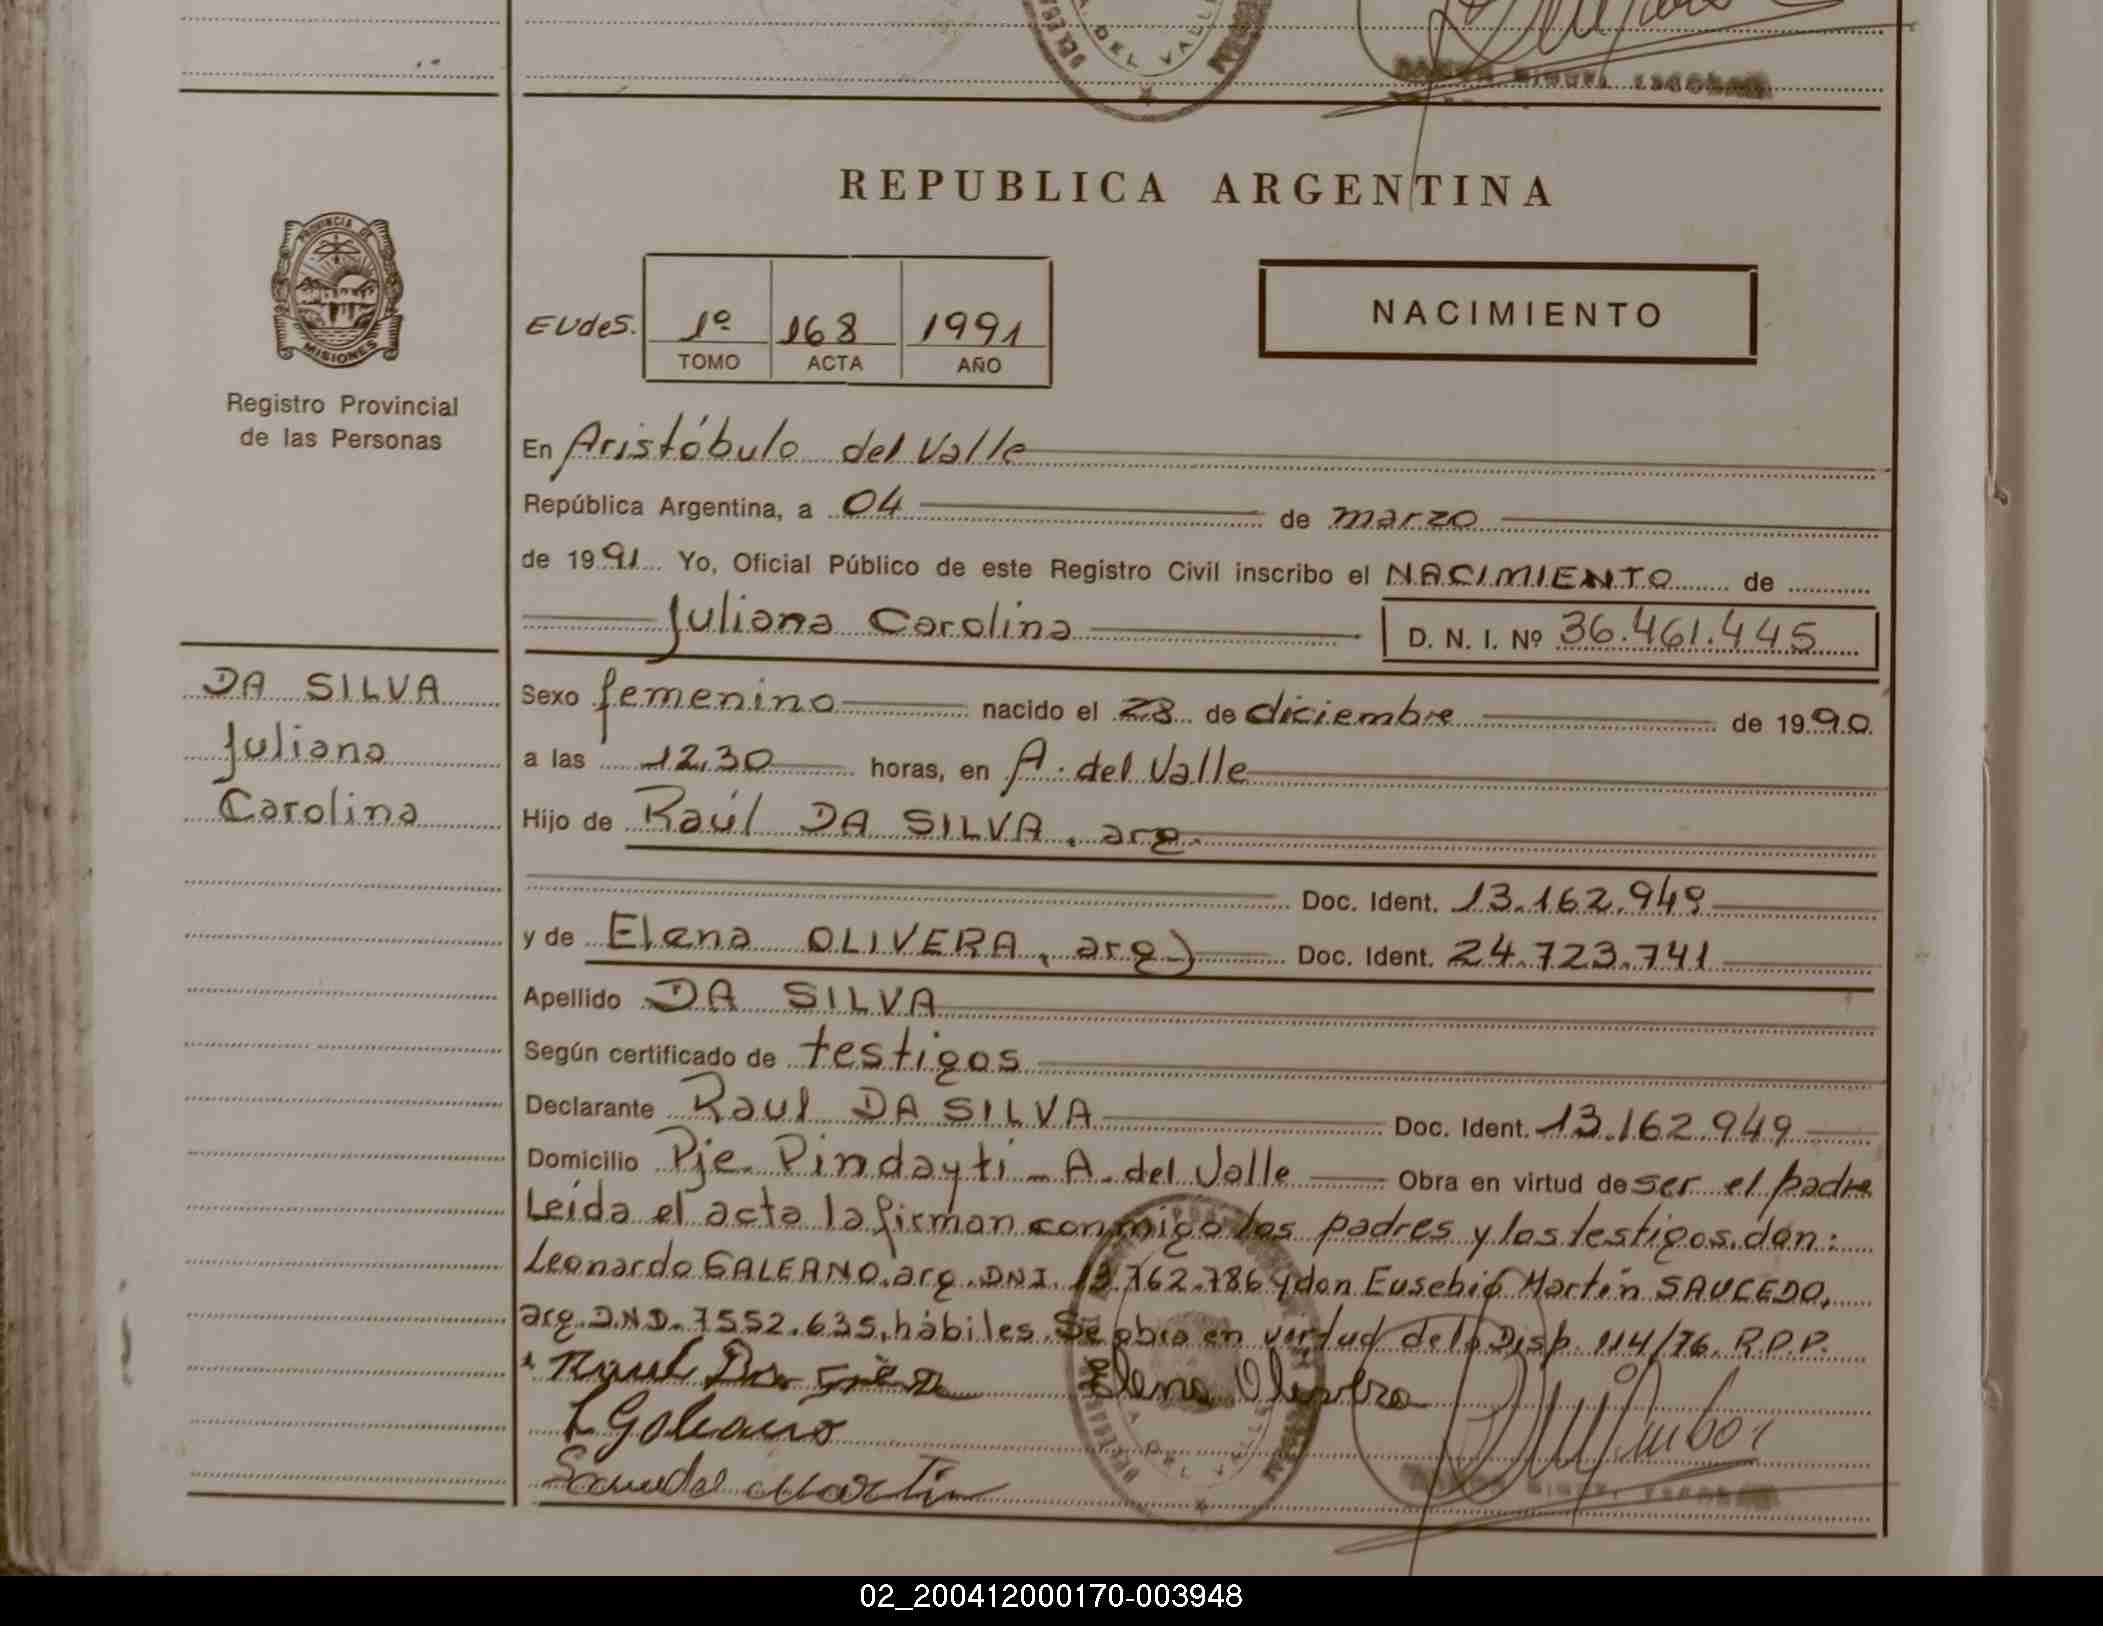 DEL VALLE
REPUBLICA ARGENTINA
PROVINCIA DE
MISIONES
Registro Provincial
de las Personas
EUdeS.
1º 168 1991
TOMO ACTA AÑO
NACIMIENTO
En Aristóbulo del Valle
República Argentina, a 04 de marzo
de 1991 Yo, Oficial Público de este Registro Civil inscribo el NACIMIENTO de
Juliana Carolina D. N. I. Nº 36.461.445
DA SILVA
Juliana
Carolina
Sexo femenino nacido el 28 de diciembre de 1990.
a las 12,30 horas, en A. del Valle
Hijo de Raúl DA SILVA, arg.
Doc. Ident. 13.162.949
y de Elena OLIVERA, arg) Doc. Ident. 24.723.741
Apellido DA SILVA
Según certificado de testigos
Declarante Raul DA SILVA Doc. Ident. 13.162.949
Domicilio Pje. Pindayti - A. del Valle Obra en virtud de ser el padre
Leída el acta la firman conmigo los padres y los testigos, don:
Leonardo GALEANO, arg. DNI. 13.762.786 y don Eusebio Martín SAUCEDO,
arg. D.N.D. 7552.635, hábiles. Se obra en virtud de la Disp. 114/76. R.P.P.
Raul Da Elena Olivera
L Galeano
Martin
02_200412000170-003948